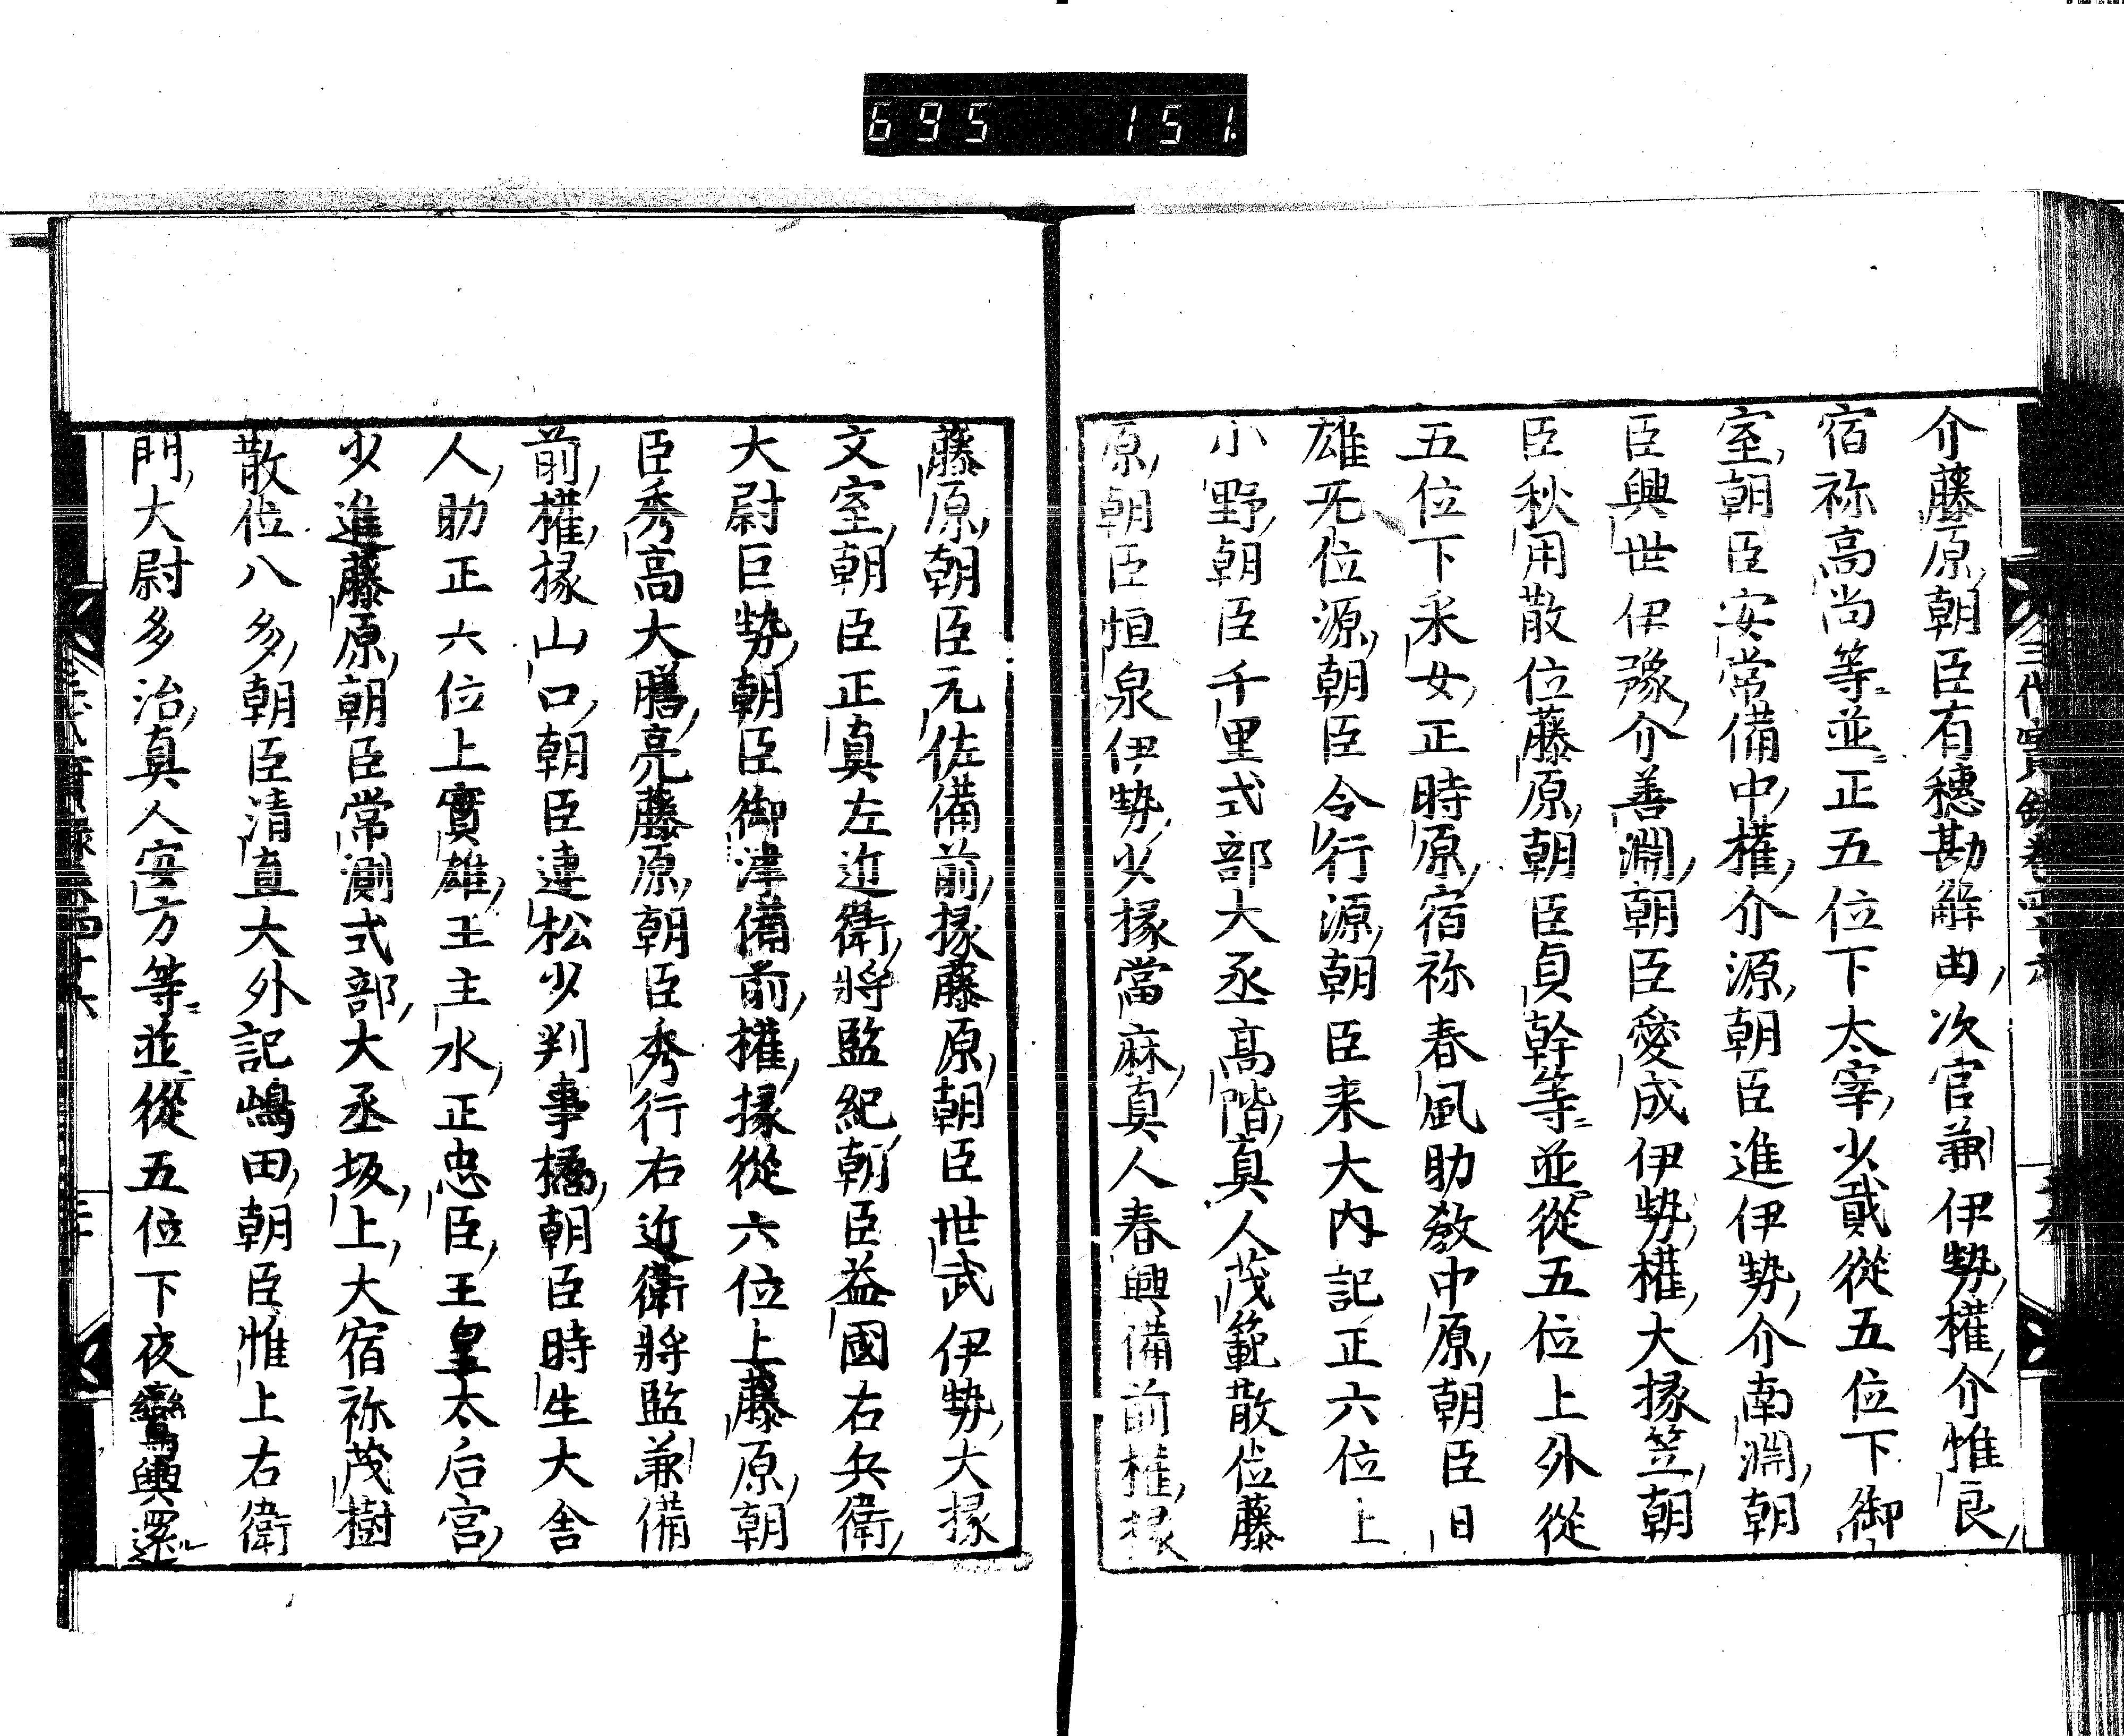 695 151
介藤原朝臣有穗勘解由次官兼伊勢權介惟良
宿祢高尚等並正五位下太宰少貳從五位下御
室朝臣安常備中權介源朝臣進伊勢介南淵朝
臣興世伊豫介善淵朝臣愛成伊勢權大掾笠朝
臣秋用散位藤原朝臣貞幹等並從五位上外從
五位下釆女正時原宿祢春風助教中原朝臣月
雄无位源朝臣令行源朝臣来大内記正六位上
小野朝臣千里式部大丞高階真人茂範散位藤
原朝臣恒泉伊勢少掾當麻真人春興備前權掾
藤原朝臣元佐備前掾藤原朝臣世武伊勢大掾
文室朝臣正真左近衛將監紀朝臣益國右兵衛
大尉巨勢朝臣御津備前權掾從六位上藤原朝
臣秀高大膳亮藤原朝臣秀行右近衛將監兼備
前權掾山口朝臣連松少判事橘朝臣時生大舎
人助正六位上實雄王主水正忠臣王皇太后宮
少進藤原朝臣常測式部大丞坂上大宿祢茂樹
散位八多朝臣清直大外記嶋田朝臣惟上右衛
門大尉多治真人安方等並從五位下夜鸞輿還